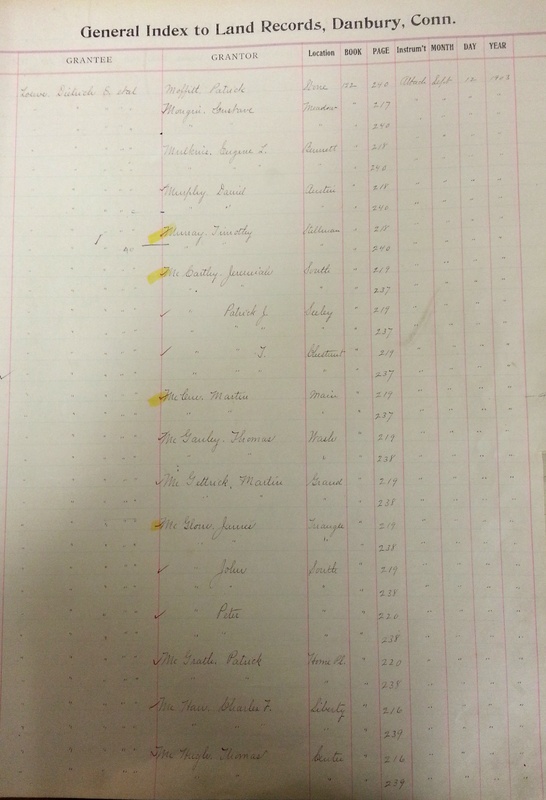 General Index to Land Records, Danbury, Conn.
GRANTEE GRANTOR Location BOOK PAGE Instrum't MONTH DAY YEAR
Loewe, Dietrich E. et al Moffitt Patrick 122 240 Attach Sept 12 1903
" " " " Mongin, Gustave Meadow " 217 " " " "
" " " " " " " " 240 " " " "
" " " " Eugene L. Bennett " 218 " " " "
" " " " " " " " 240 " " " "
" " " " Murphy David Austin " 218 " " " "
" " " " " " " " 240 " " " "
" " " " Murray, Timothy " 218 " " " "
" " " " " " " " 240 " " " "
" " " " Mc Carthy Jeremiah South " 219 " " " "
" " " " " " " " 237 " " " "
" " " " " Patrick J. Seeley " 219 " " " "
" " " " " " " " 237 " " " "
" " " " " T. Chestnut " 219 " " " "
" " " " " " " " 237 " " " "
" " " " Martin Main " 219 " " " "
" " " " " " " " 237 " " " "
" " " " Mc Ganley Thomas " 219 " " " "
" " " " " " " " 238 " " " "
" " " " Mc Gettrick, Martin Grand " 219 " " " "
" " " " " " " " 238 " " " "
" " " " Mc Glone James Triangle " 219 " " " "
" " " " " " " " 238 " " " "
" " " " " John South " 219 " " " "
" " " " " " " " 238 " " " "
" " " " " Peter " " 220 " " " "
" " " " " " " " 238 " " " "
" " " " Mc Grath, Patrick Home Pl. " 220 " " " "
" " " " " " " " 239 " " " "
" " " " Charles F. Liberty " 216 " " " "
" " " " " " " " 239 " " " "
" " " " Mc Hugh Thomas Center " 216 " " " "
" " " " " " " " 239 " " " "